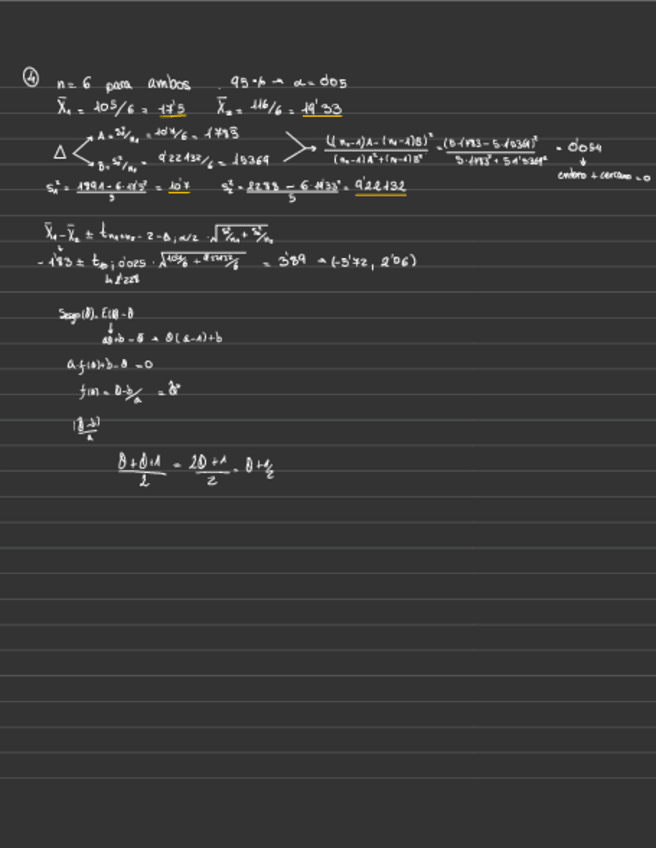 ④ n = 6 para ambos . 95 % → α = 0'05
X̄₁ = 105/6 = 17'5 X̄₂ = 116/6 = 19'33
A = S₁²/n₁ = 10'7/6 = 1'783
Δ ((n₂-1)A - (n₁-1)B)² / (n₂-1)A² + (n₁-1)B² = (5·1'783 - 5·1'5369)² / 5·1'783² + 5·1'5369² = 0'054
B = S₂²/n₂ = 9'22132/6 = 1'5369
entero + cercano = 0
S₁² = 1891 - 6·17'5² / 5 = 10'7 S₂² = 2288 - 6·19'33² / 5 = 9'22132
X̄₁ - X̄₂ ± t n₁+n₂ - 2 - Δ ; α/2 · √S₁²/n₁ + S₂²/n₂
- 1'83 ± t₁₀ ; 0'025 · √10'7/6 + 9'22132/6 = 3'89 → (-5'72, 2'06)
↳ 2'228
Sesgo(θ̂) = E(θ̂) - θ
aθ+b - θ → θ(a-1)+b
a·f(θ)+b - θ = 0
f(θ) = θ-b/a = θ̂*
(θ̂-b)/a
θ+θ+1 / 2 = 2θ+1 / 2 = θ+1/2